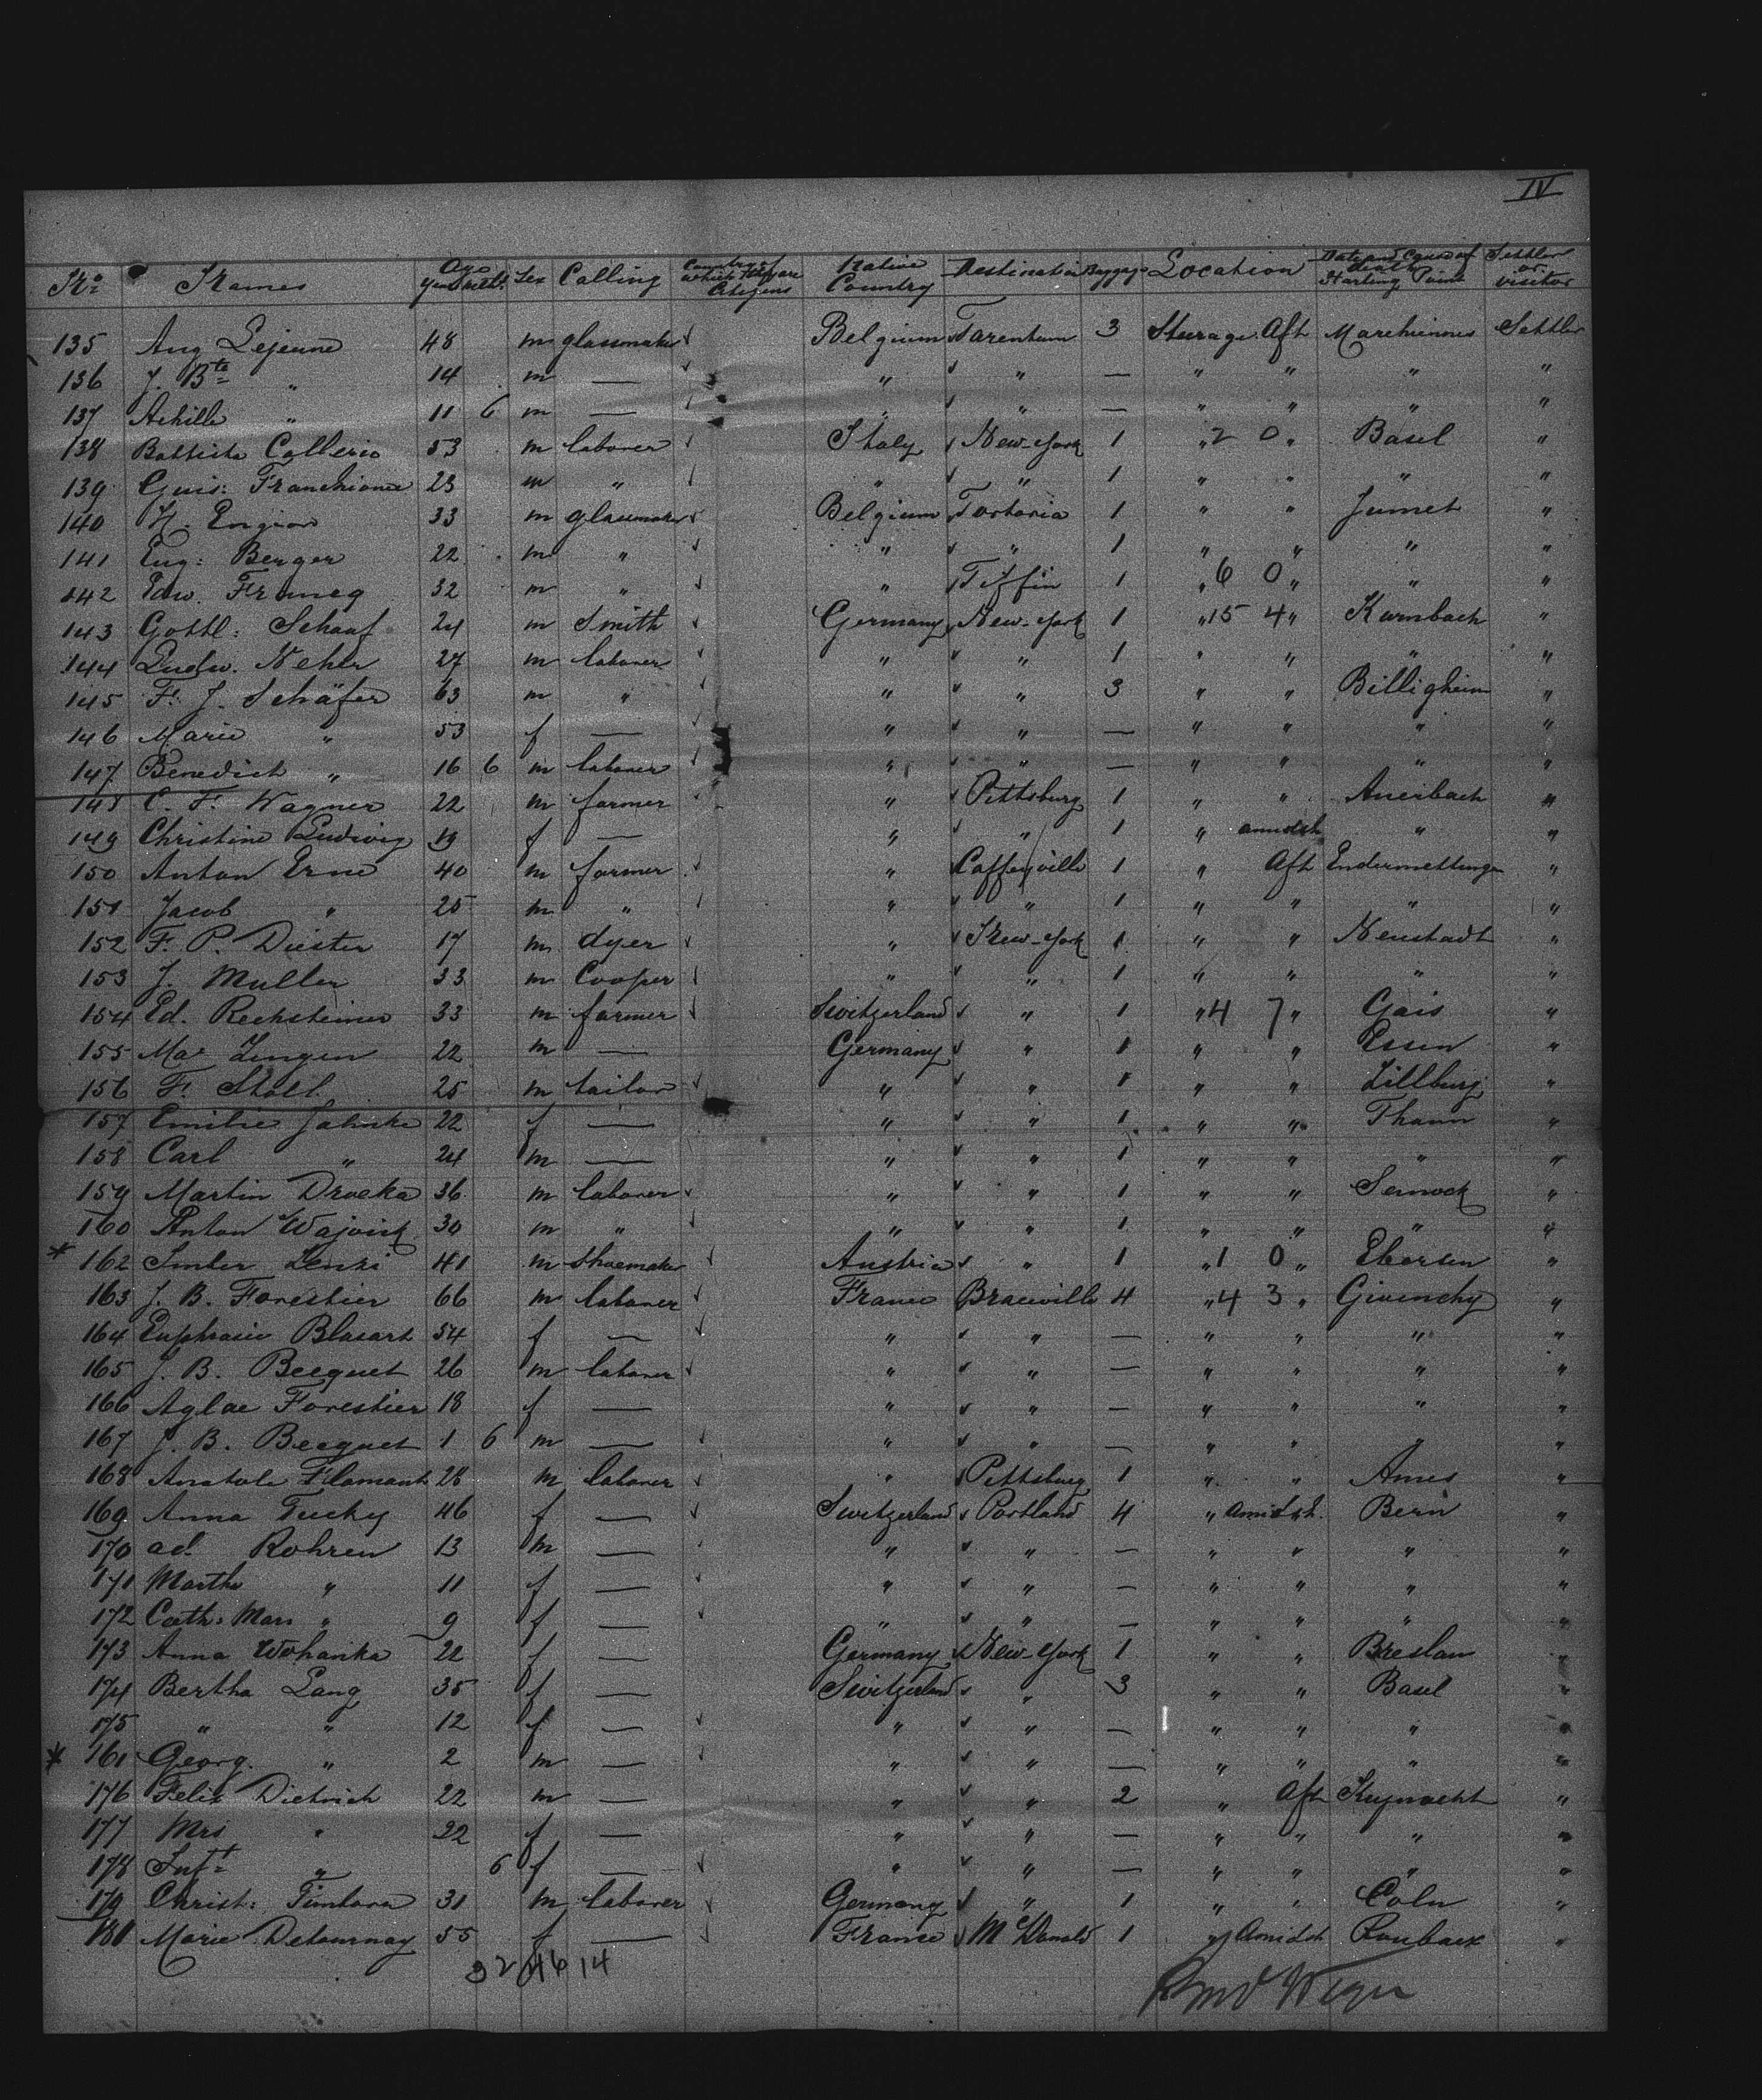 IV
No Names Age years mths. Sex Calling Country of which they are Citizens Native Country Destination Baggage Location Date and Cause of death Starting Point Settler or visitor
135 Aug Lejeune 48 m glassmaker Belgium Tarentum 3 Steerage Aft Marchiennes Settler
136 J. Bte " 14 m — " " — " " " "
137 Achille " 11 6 m — " " — " " " "
138 Battista 53 m laborer Italy New-York 1 " 2 0 " Basel "
139 Guis: Franchione 23 m " " " 1 " " " "
140 H. 33 m glassmaker Belgium Tortoria 1 " " Jumet "
141 Eug: Berger 22 m " " " 1 " " " "
142 Edw. 32 m " " Tiffin 1 " 6 0 " " "
143 Gottl: Schaaf 24 m Smith Germany New-York 1 " 15 4 " Kurnbach "
144 Ludw. Nehle 27 m laborer " " 1 " " " "
145 F. J. Schäfer 63 m " " " 3 " " Billigheim "
146 Marie " 53 f — " " — " " " "
147 Benedict " 16 6 m laborer " " — " " " "
148 C. F. Wagner 22 m farmer " Pittsburg 1 " " Auerbach "
149 Christine Ludwig 19 f — " " 1 " amidsh " "
150 Anton Erne 40 m farmer " Coffeyville 1 " Aft "
151 Jacob " 25 m " " " 1 " " " "
152 F. P. Diester 17 m dyer " New-York 1 " " Neustadt "
153 J. Muller 33 m Cooper " " 1 " " " "
154 Ed. Rechsteiner 33 m farmer Switzerland " 1 " 4 7 " Gais "
155 Zingen 22 m — Germany " 1 " " Essen "
156 F. Stoll 25 m tailor " " 1 " " Lillburg "
157 Emilie Jahnke 22 f — " " 1 " " Thann "
158 Carl " 24 m — " " 1 " " " "
159 Martin Drocka 36 m laborer " " 1 " " Sernock "
160 Anton 30 m " " " 1 " " " "
* 162 41 m Shoemaker Austria " 1 " 1 0 " Ebersen "
163 J. B. Forestier 66 m laborer France Braceville 4 " 4 3 " Givenchy "
164 Euphrasie Blasart 54 f — " " — " " " "
165 J. B. Becquet 26 m laborer " " — " " " "
166 Aglae Forestier 18 f — " " — " " " "
167 J. B. Becquet 1 6 m — " " — " " " "
168 Anatole Flamant 28 m laborer " Pittsburg 1 " " Ames "
169 Anna Tucky 46 f — Switzerland Portland 4 " amidsh. Bern "
170 ad. Rohren 13 m — " " — " " " "
171 Martha " 11 f — " " — " " " "
172 Cath: " 9 f — " " — " " " "
173 Anna Wohanka 22 f — Germany New-York 1 " " Breslau "
174 Bertha Lang 35 f — Switzerland " 3 " " Basel "
175 " " 12 f — " " — " " " "
* 161 Georg. " 2 m — " " — " " " "
176 Felix Dietrich 22 m — " " 2 " Aft "
177 Mrs " 22 f — " " — " " " "
178 Inft " 6 f — " " — " " " "
179 Christ: 31 m laborer Germany " 1 " " Cöln "
181 Marie Detournay 55 f — France McDonald 1 " Amidsh Roubaix "
32 46 14